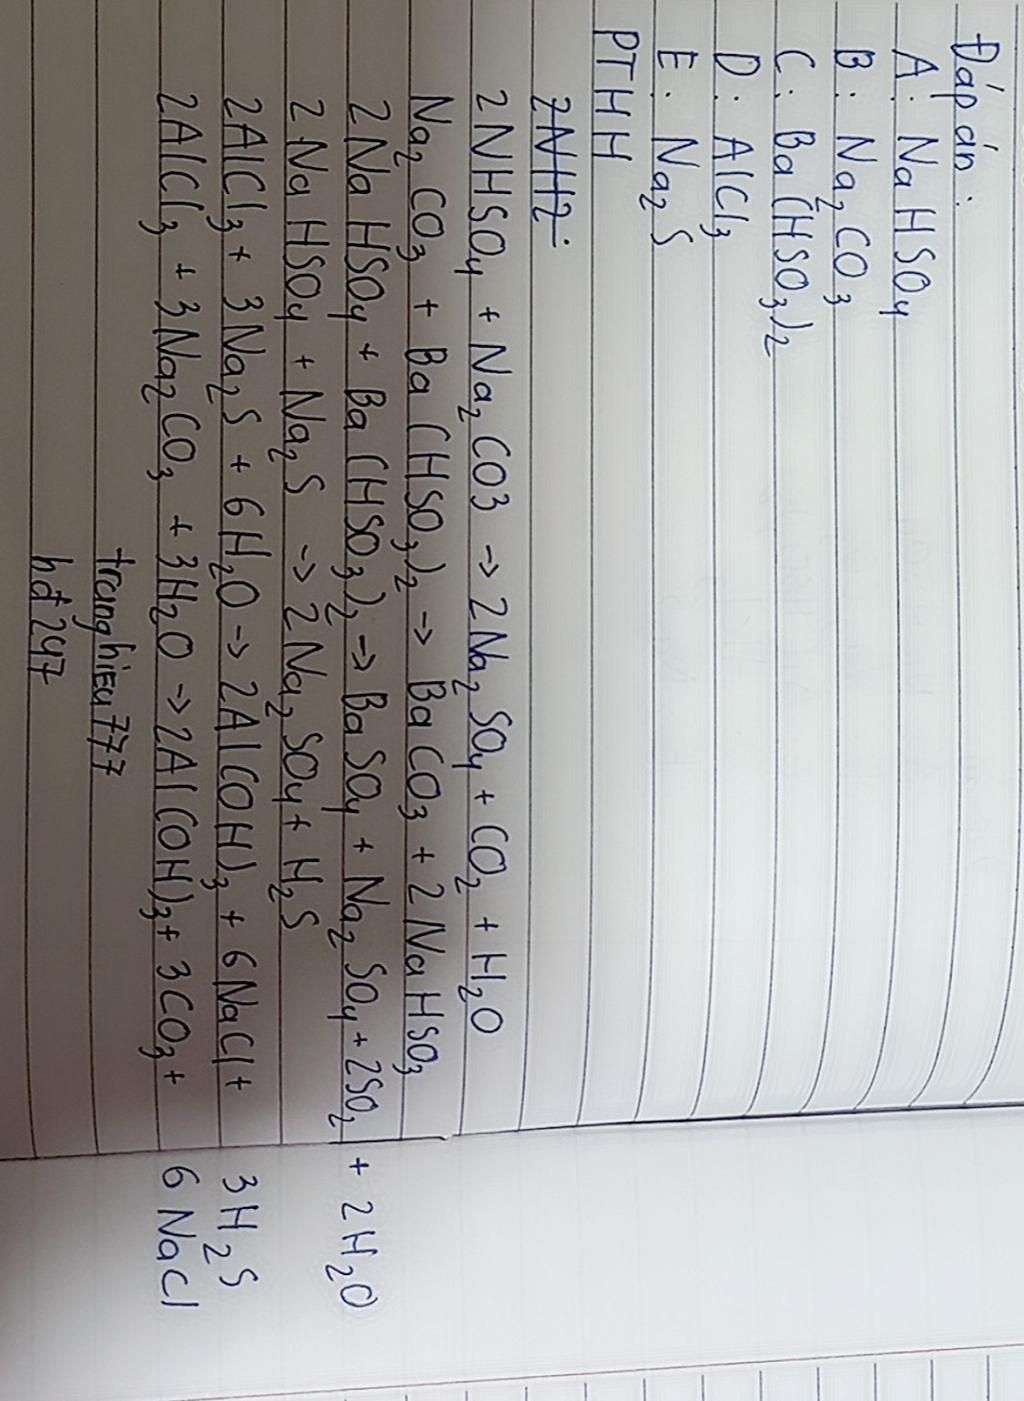 Đáp án:
A: NaHSO4
B: Na2CO3
C: Ba(HSO3)2
D: AlCl3
E: Na2S
PTHH
2NH2:
2NHSO4 + Na2CO3 -> 2Na2SO4 + CO2 + H2O
Na2CO3 + Ba(HSO3)2 -> BaCO3 + 2NaHSO3
2NaHSO4 + Ba(HSO3)2 -> BaSO4 + Na2SO4 + 2SO2 + 2H2O
2NaHSO4 + Na2S -> 2Na2SO4 + H2S
2AlCl3 + 3Na2S + 6H2O -> 2Al(OH)3 + 6NaCl + 3H2S
2AlCl3 + 3Na2CO3 + 3H2O -> 2Al(OH)3 + 3CO3 + 6NaCl
tranghieu777
hđ247